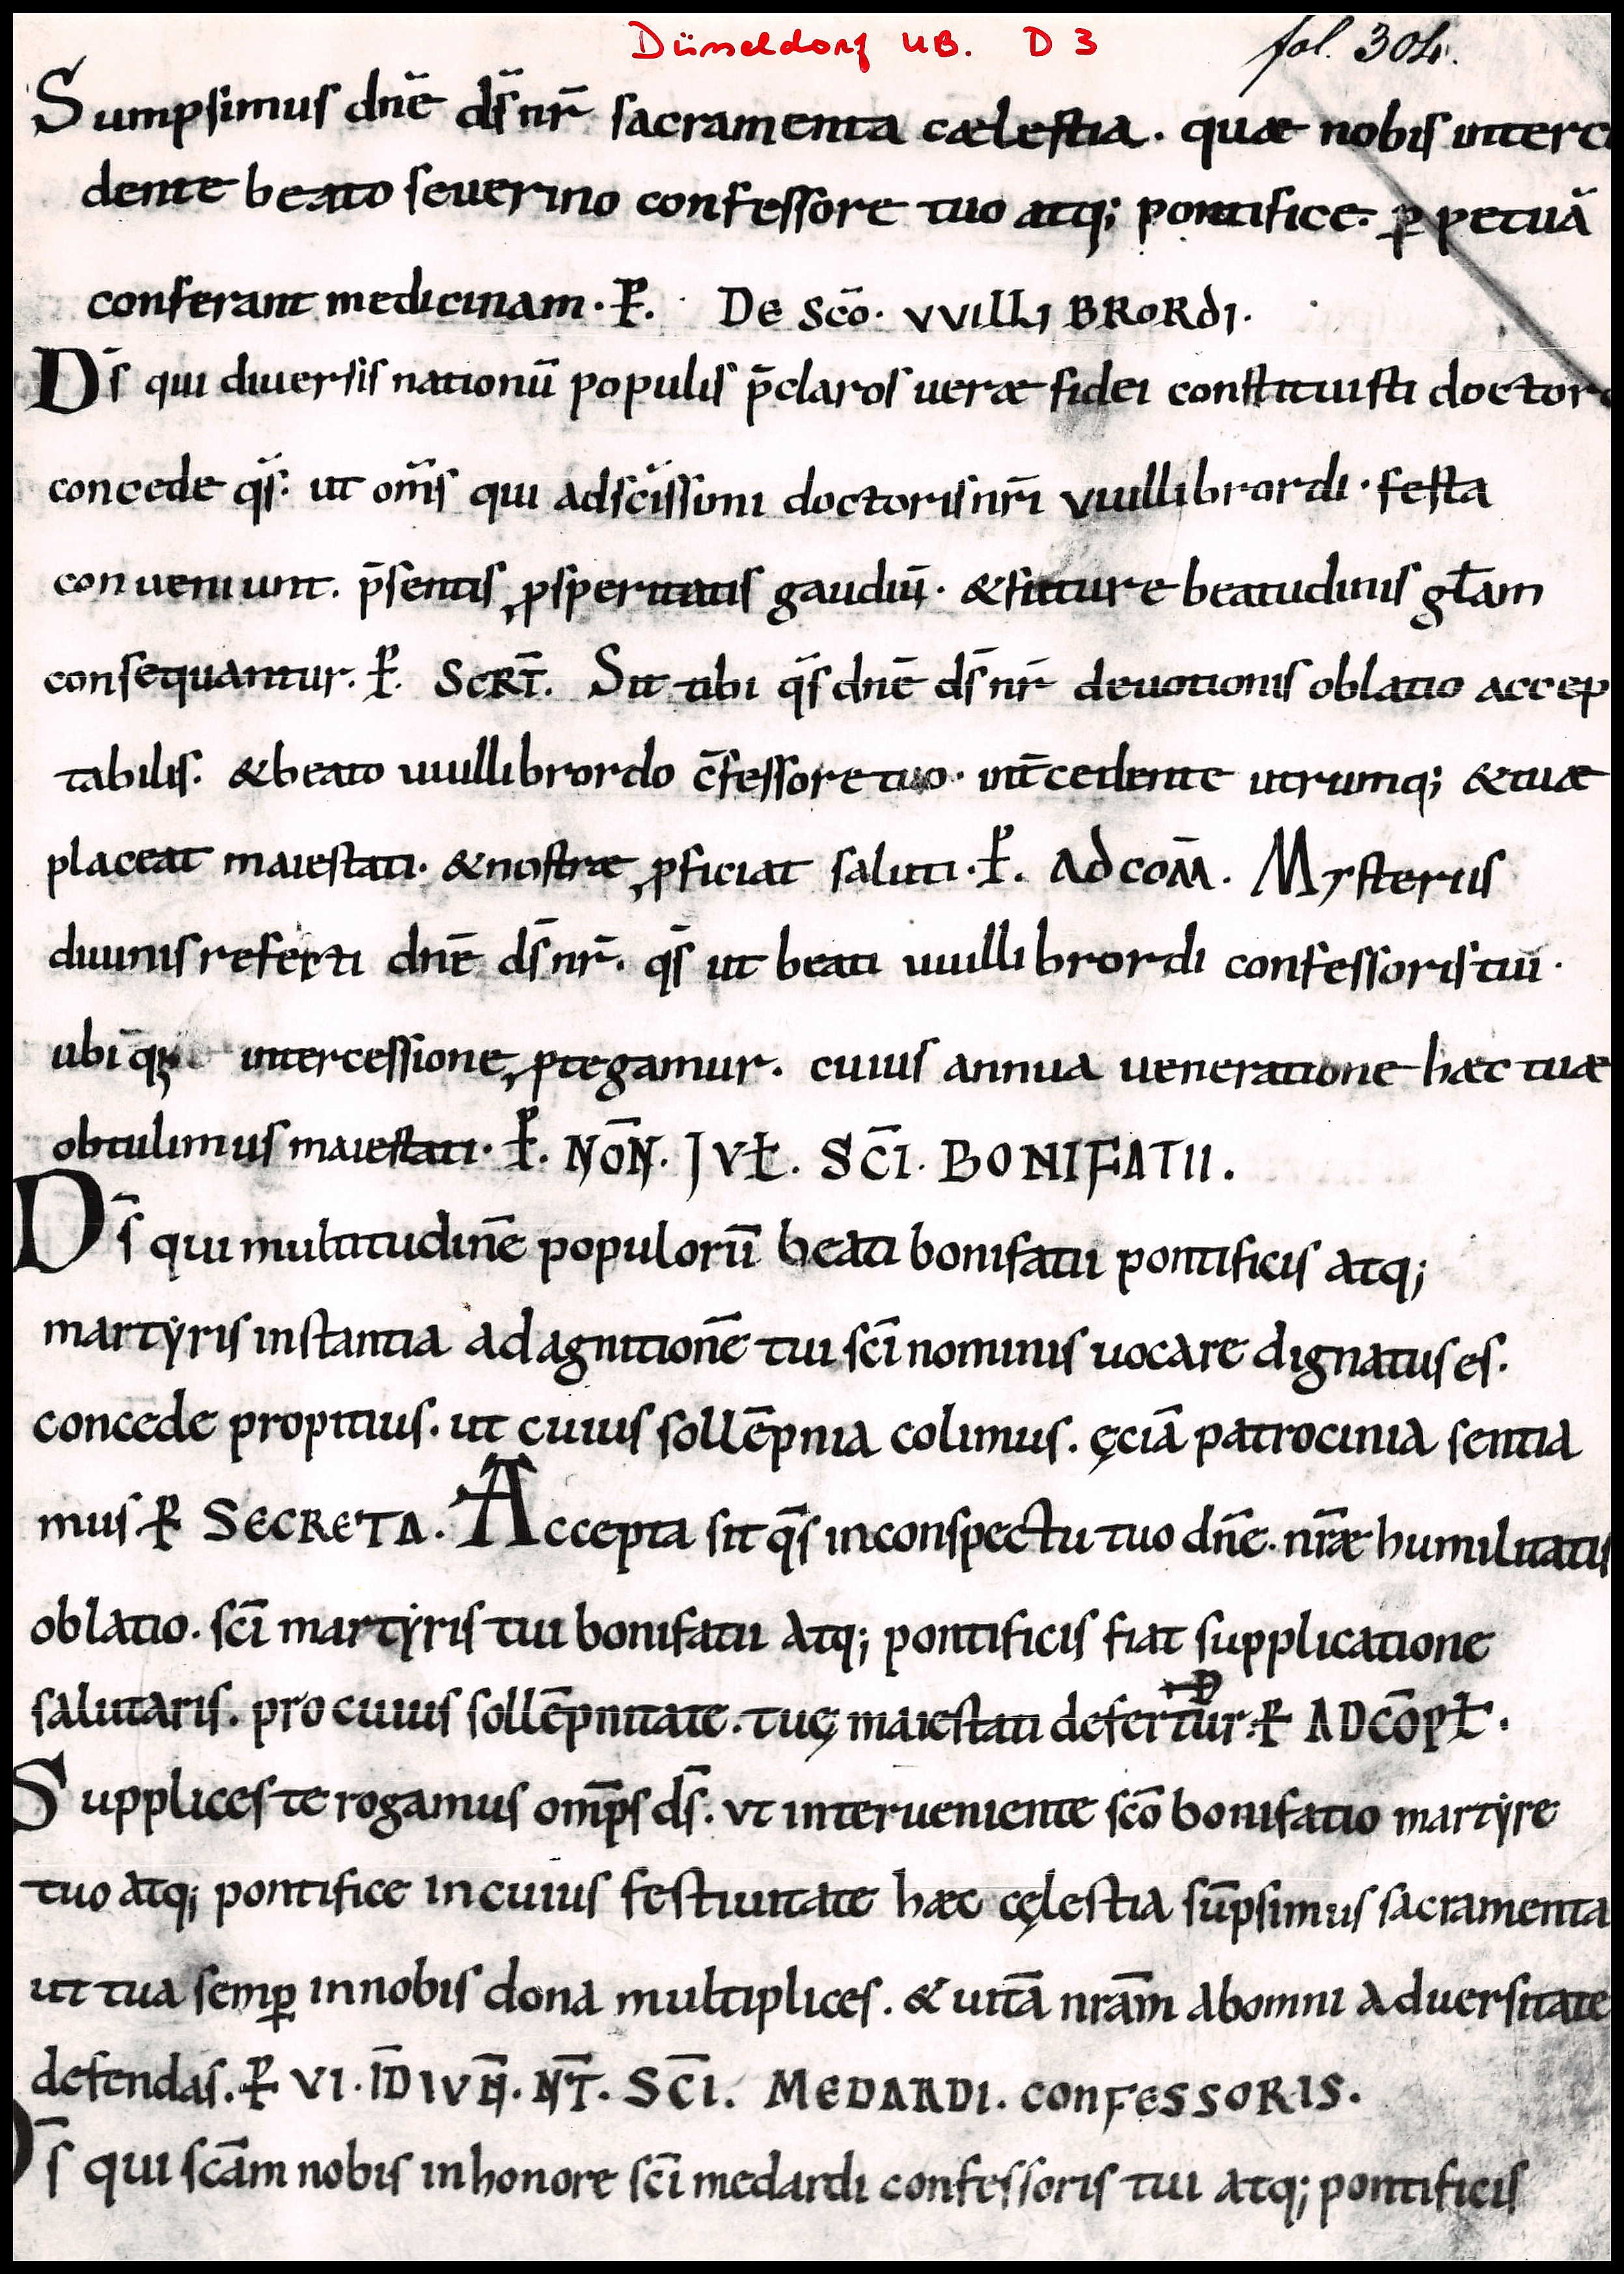 Düsseldorf UB. D 3
fol. 304.
Sumpsimus dnē d̄s nr̄ sacramenta cælestia. quæ nobis interce
dente beato seuerino confessore tuo atq; pontifice. ꝑpetuā
conferant medicinam. P̄. De sc̄o. VVILLIBRORDI.
D̄s qui diuersis nationū populis p̄claros ueræ fidei constituisti doctore
concede q̄s. ut om̄s qui ad sc̄issimi doctoris nr̄i vuillibrordi. festa
conueniunt. p̄sentis ꝓsperitatis gaudiū. & future beatudinis gl̄am
consequantur. P̄. SCRT̄. Sit tibi q̄s dnē d̄s nr̄ deuotionis oblatio accep
tabilis. & beato uuillibrordo c̄fessore tuo. int̄cedente utrumq; & tuæ
placeat maiestati. & nostræ ꝓficiat saluti. P̄. AD COM̄. Mysteriis
diuinis referti dnē d̄s nr̄. q̄s ut beati uuillibrordi confessoris tui.
ubiq; intercessione ꝓtegamur. cuius annua ueneratione hæc tuæ
obtulimus maiestati. P̄. NŌN. IVL̄. SC̄I. BONIFATII.
D̄s qui multitudinē populorū beati bonifatii pontificis atq;
martẏris instantia ad agnitionē tui sc̄i nominis uocare dignatus es.
concede propitius. ut cuius sollēpnia colimus. ęciā patrocinia sentia
mus P̄ SECRETA. Accepta sit q̄s in conspectu tuo dn̄e. nr̄æ humilitatis
oblatio. sc̄i martẏris tui bonifatii atq; pontificis fiat supplicatione
salutaris. pro cuius sollēpnitate. tuę maiestati defertur. P̄ AD CŌPL̄.
Supplices te rogamus omp̄s d̄s. vt interueniente sc̄o bonifatio martẏre
tuo atq; pontifice in cuius festiuitate hæc cęlestia sūpsimus sacramenta
ut tua semꝑ in nobis dona multiplices. & uitā nr̄am ab omni aduersitate
defendas. P̄ VI. ID̄ IVN̄. NT̄. SC̄I. MEDARDI. CONFESSORIS.
D̄s qui sc̄am nobis in honore sc̄i medardi confessoris tui atq; pontificis